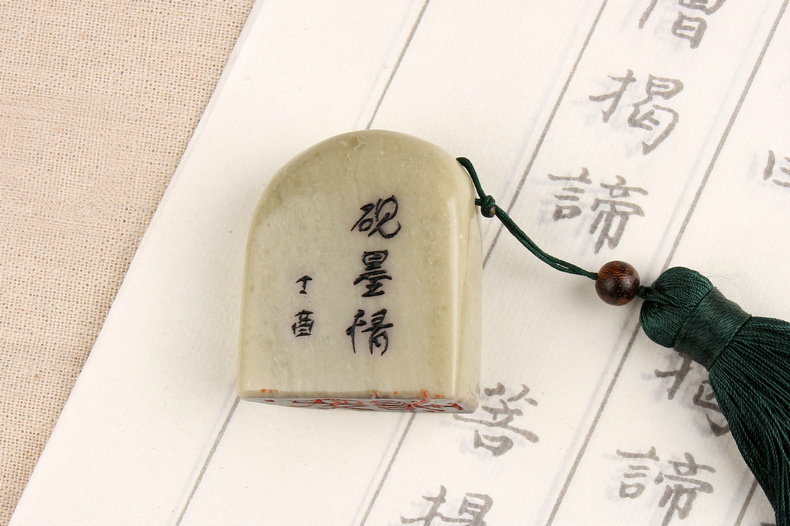 砚墨情
丁酉
揭諦
僧揭諦菩提